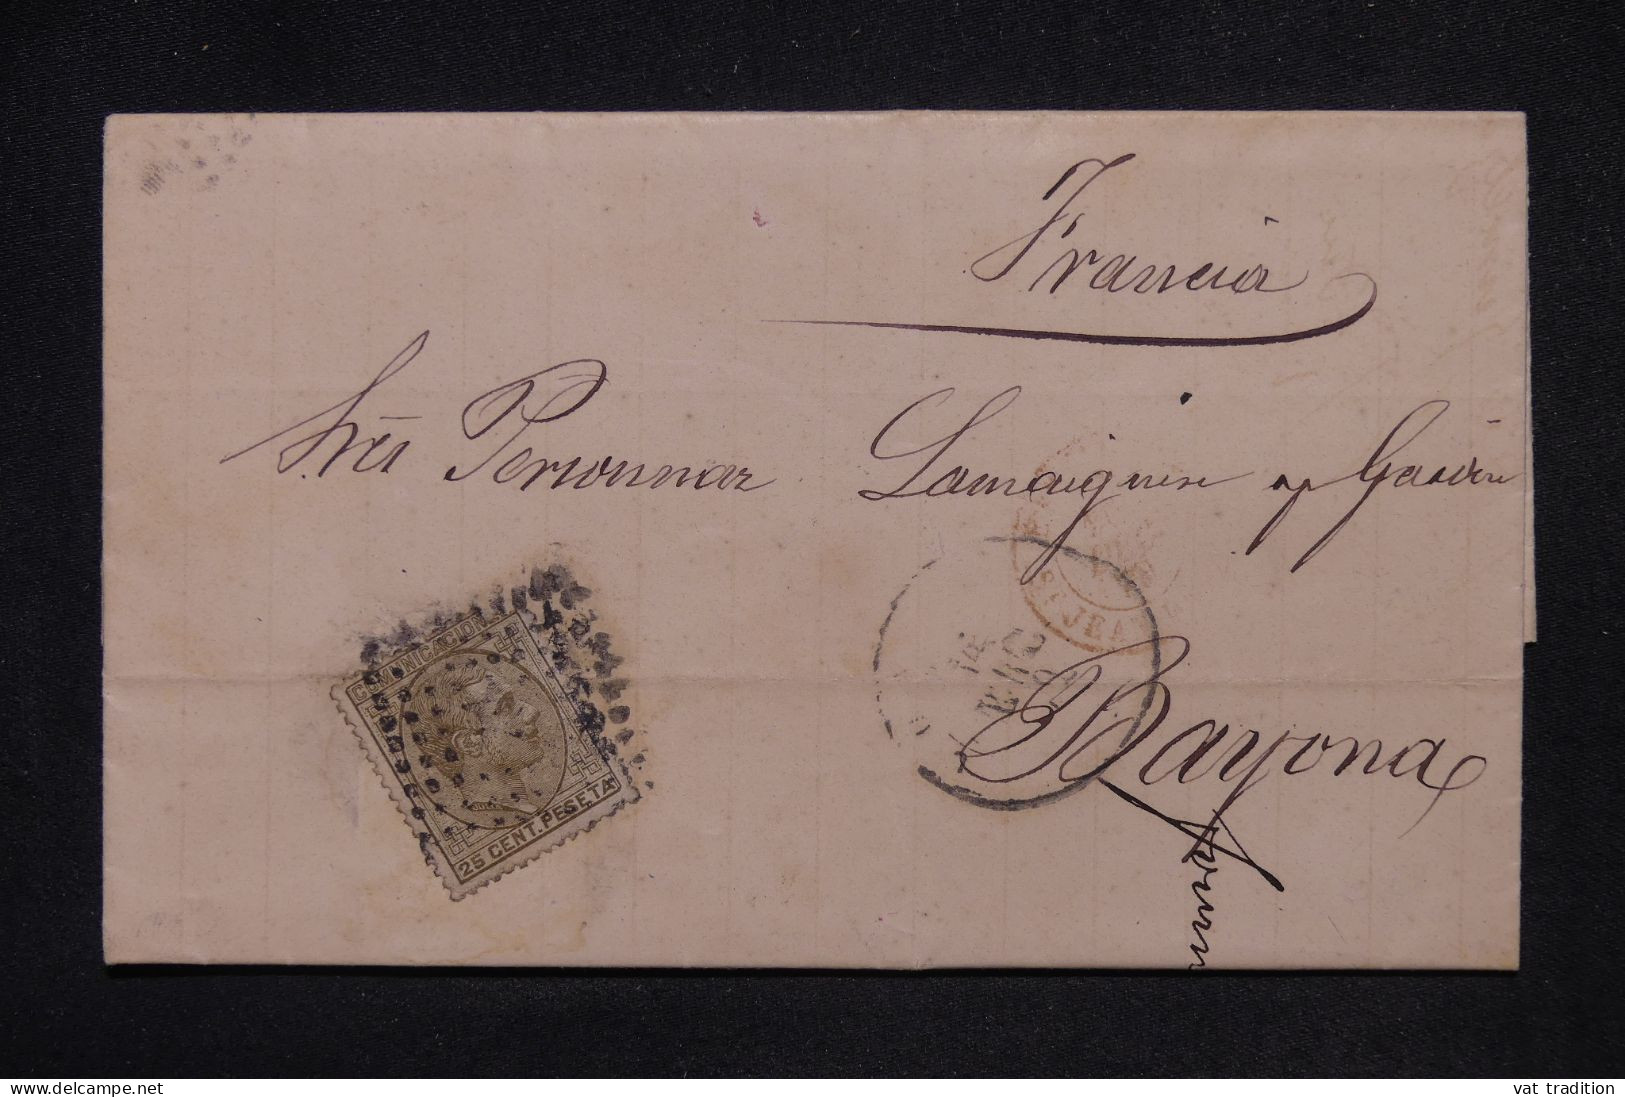 Francia
Sres Personnaz Lamaignere y Gassin
Bayona
COMUNICACIONES
25 CENT. PESETA
14
ENERO
ST JEAN
www.delcampe.net
vat tradition